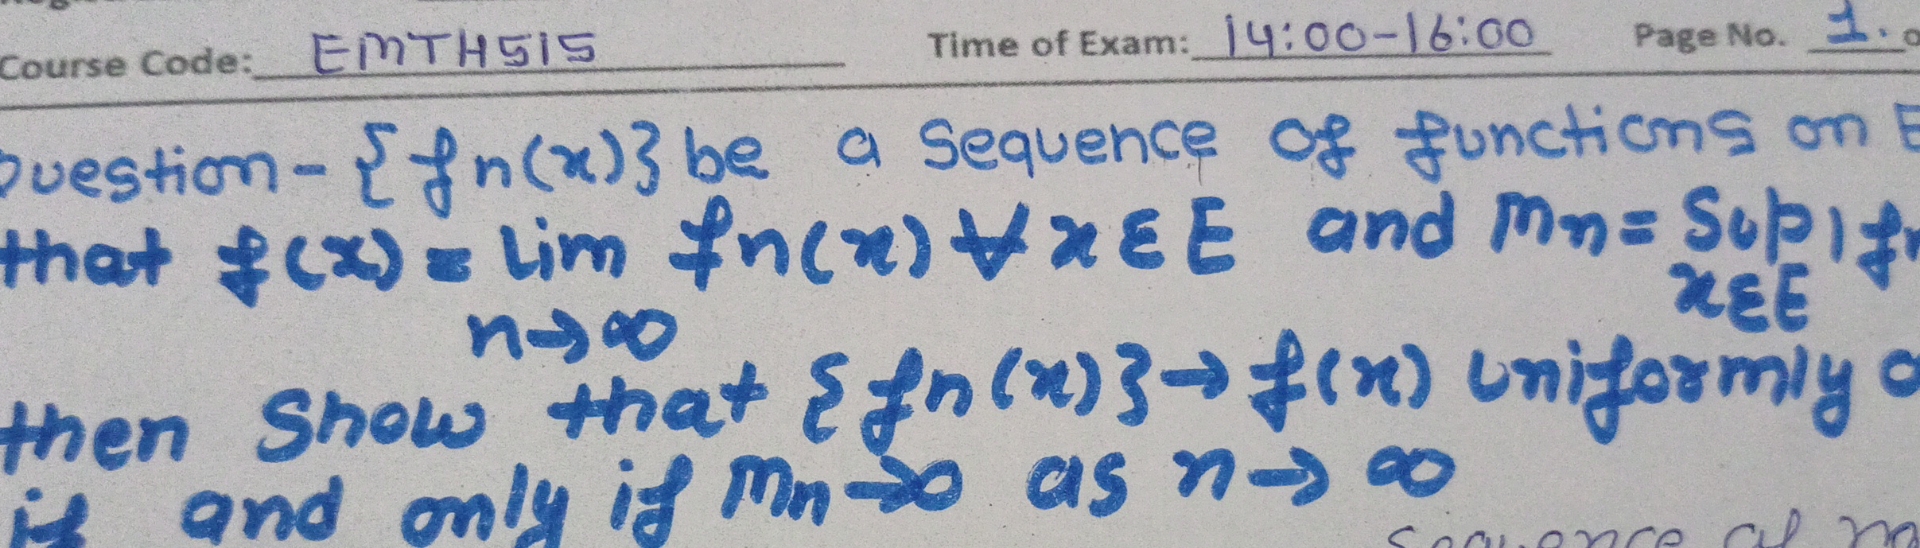 Course Code: EMTH515 Time of Exam: 14:00-16:00 Page No. 1.
Question - {fn(x)} be a sequence of functions on E
that f(x) = lim fn(x) ∀ x ∈ E and Mn = Sup | fn
n→∞ x∈E
then show that {fn(x)} → f(x) uniformly
if and only if Mn→0 as n → ∞
sequence of